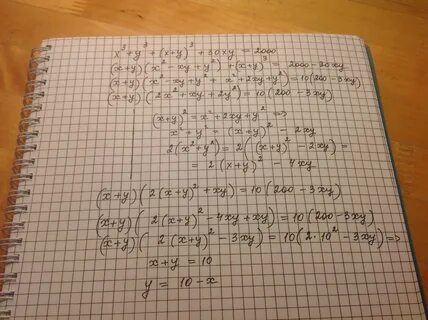 x³ + y³ + (x+y)³ + 30xy = 2000
(x+y)(x² - xy + y²) + (x+y)³ = 2000 - 30xy
(x+y)(x² - xy + y² + x² + 2xy + y²) = 10(200 - 3xy)
(x+y)(2x² + xy + 2y²) = 10(200 - 3xy)
(x+y)² = x² + 2xy + y² =>
x² + y² = (x+y)² - 2xy
2(x² + y²) = 2((x+y)² - 2xy) =
= 2(x+y)² - 4xy
(x+y)(2(x+y)² + xy) = 10(200 - 3xy)
(x+y)(2(x+y)² - 4xy + xy) = 10(200 - 3xy)
(x+y)(2(x+y)² - 3xy) = 10(2·10² - 3xy) =>
x+y = 10
y = 10 - x